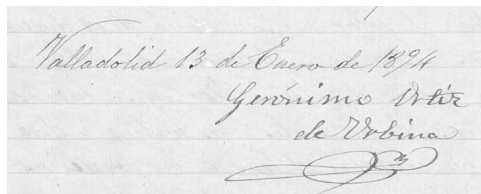 Valladolid 13 de Enero de 1894
Gerónimo Ortiz
de Urbina